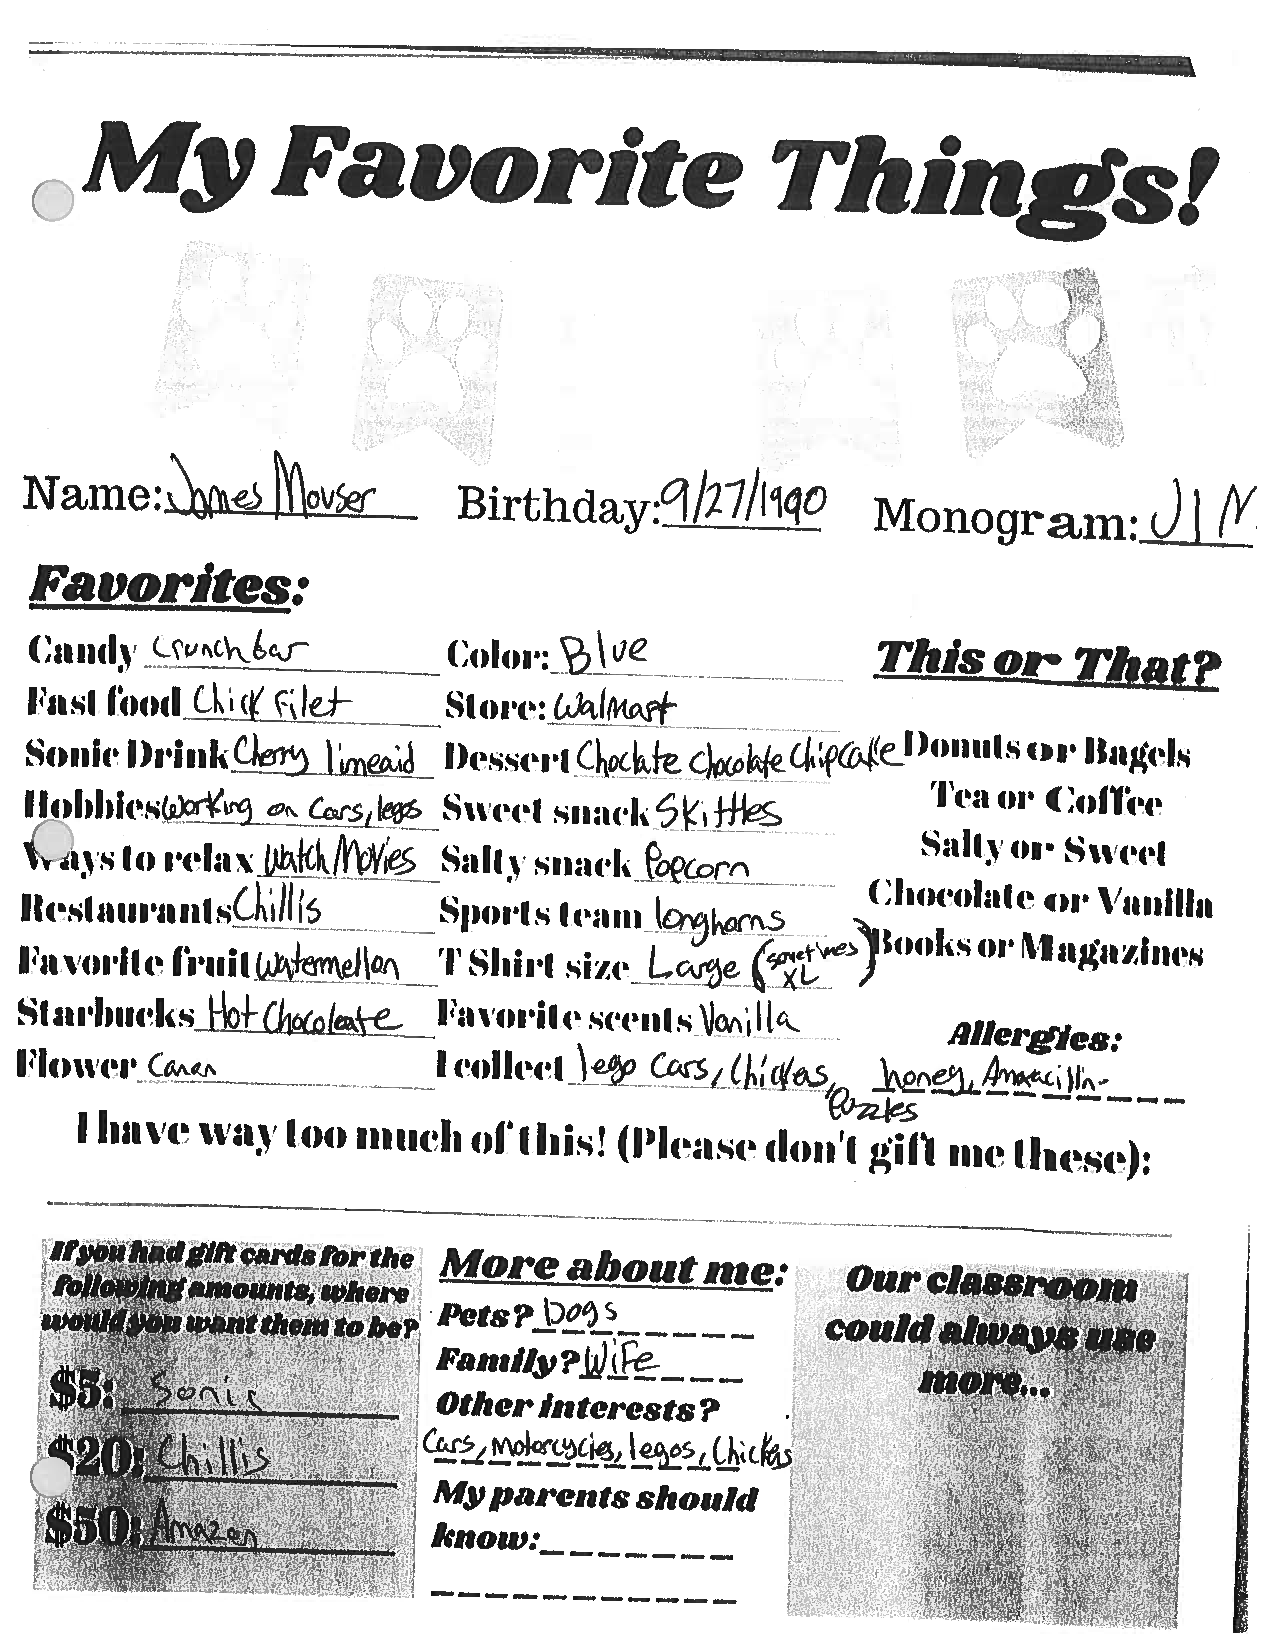 My Favorite Things!
Name: James Mouser Birthday: 9/27/1990 Monogram: J I M
Favorites:
Candy Crunch bar Color: Blue This or That?
Fast food Chick Filet Store: Walmart
Sonic Drink Cherry limeaid Dessert Choclate chocolate chip cake Donuts or Bagels
Hobbies Working on cars, legos Sweet snack Skittles Tea or Coffee
Ways to relax Watch Movies Salty snack Popcorn Salty or Sweet
Restaurants Chillis Sports team longhorns Chocolate or Vanilla
Favorite fruit Watermellon T Shirt size Large (sometimes XL) Books or Magazines
Starbucks Hot Chocoleate Favorite scents Vanilla Allergies:
Flower I collect lego Cars, Chickens, Puzzles honey,
I have way too much of this! (Please don't gift me these):
If you had gift cards for the
following amounts, where
would you want them to be?
$5: Sonic
$20: Chillis
$50: Amazon
More about me:
Pets? Dogs
Family? Wife
Other interests?
Cars, motorcycles, legos, Chickens
My parents should
know:
Our classroom
could always use
more...